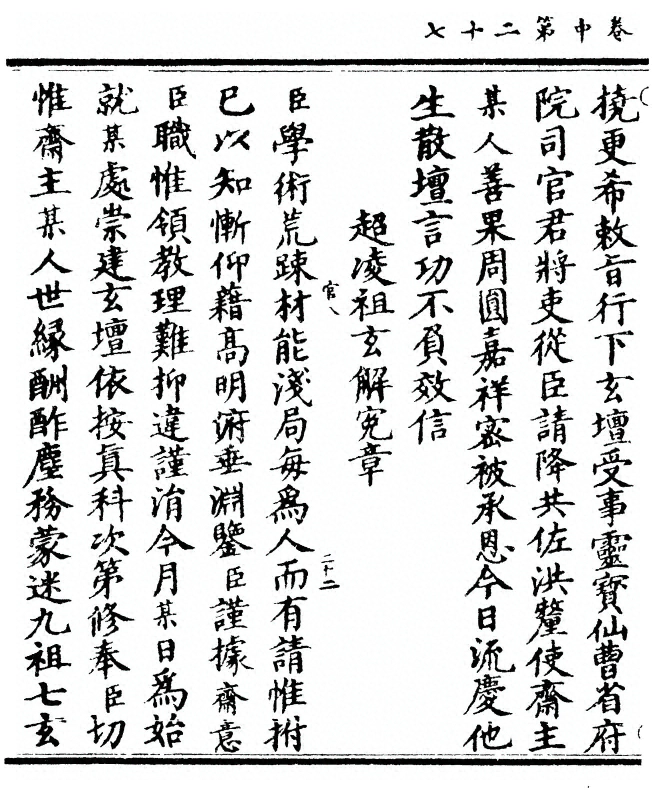 卷中第二十七
撓更希敕旨行下玄壇受事靈寳仙曹省府
院司官君將吏從臣請降共佐洪釐使齋主
某人善果周圓嘉祥密被承恩今日流慶他
生散壇言功不負效信
超凌祖玄解寃章
臣學術荒踈材能淺局每爲人而有請惟拊
官八
二十二
已以知慚仰藉高明俯垂淵鑒臣謹據齋意
臣職惟領教理難抑違謹涓今月某日爲始
就某處崇建玄壇依按真科次第修奉臣切
惟齋主某人世緣酬酢塵務蒙迷九祖七玄